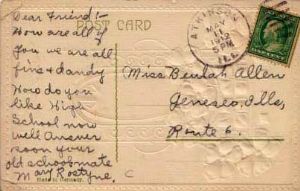 Dear Friend:-
POST CARD
How are all of
You we are all
fine & dandy
How do you
like High
School now
well Answer
soon your
old schoolmate
Mary Rostyne.
ATKINSON
MAY
11
1912
5 PM
ILL.
Miss Beulah Allen
Geneseo, Ills,
Route 6.
Made in Germany.
C